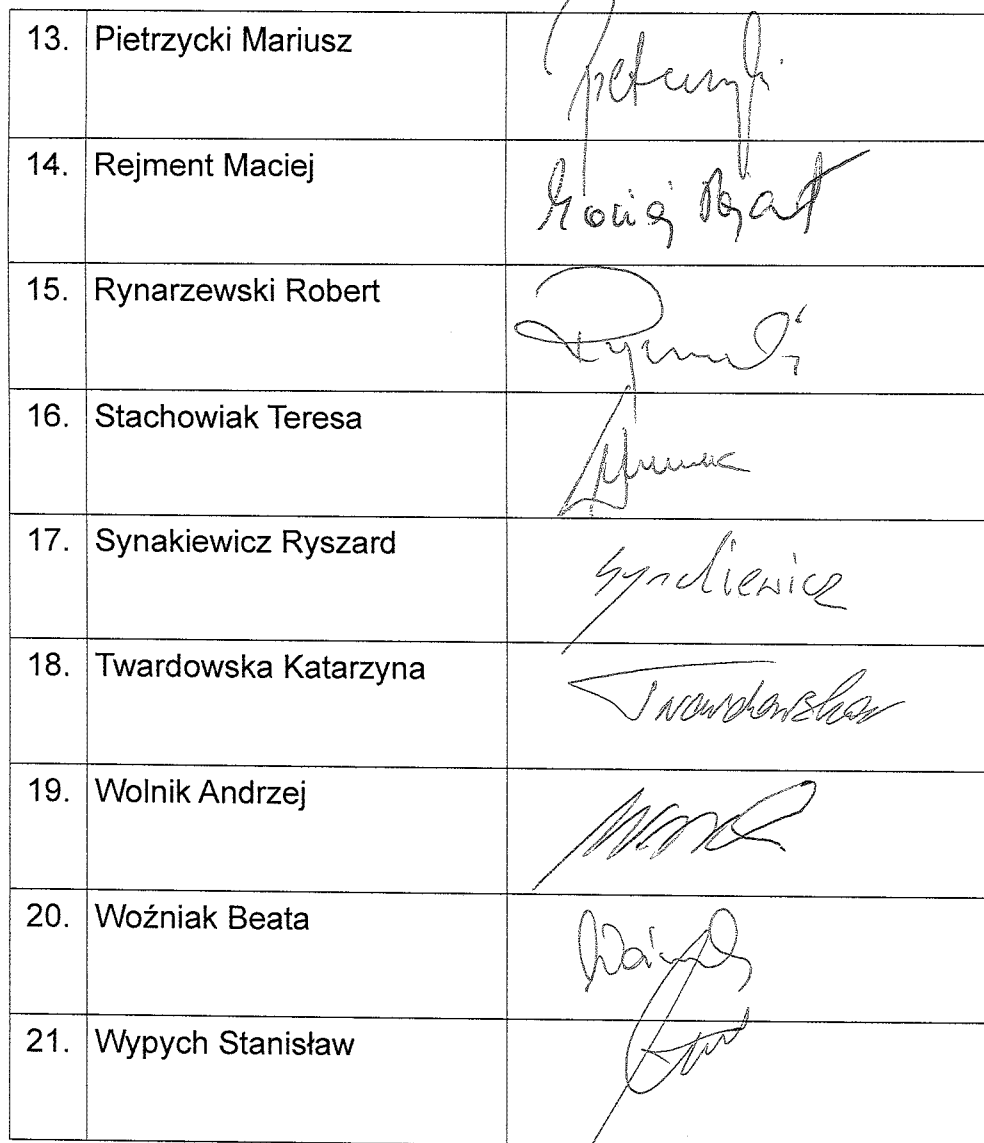 13. Pietrzycki Mariusz
14. Rejment Maciej Maciej
15. Rynarzewski Robert
16. Stachowiak Teresa
17. Synakiewicz Ryszard Synakiewicz
18. Twardowska Katarzyna Twardowska
19. Wolnik Andrzej
20. Woźniak Beata
21. Wypych Stanisław